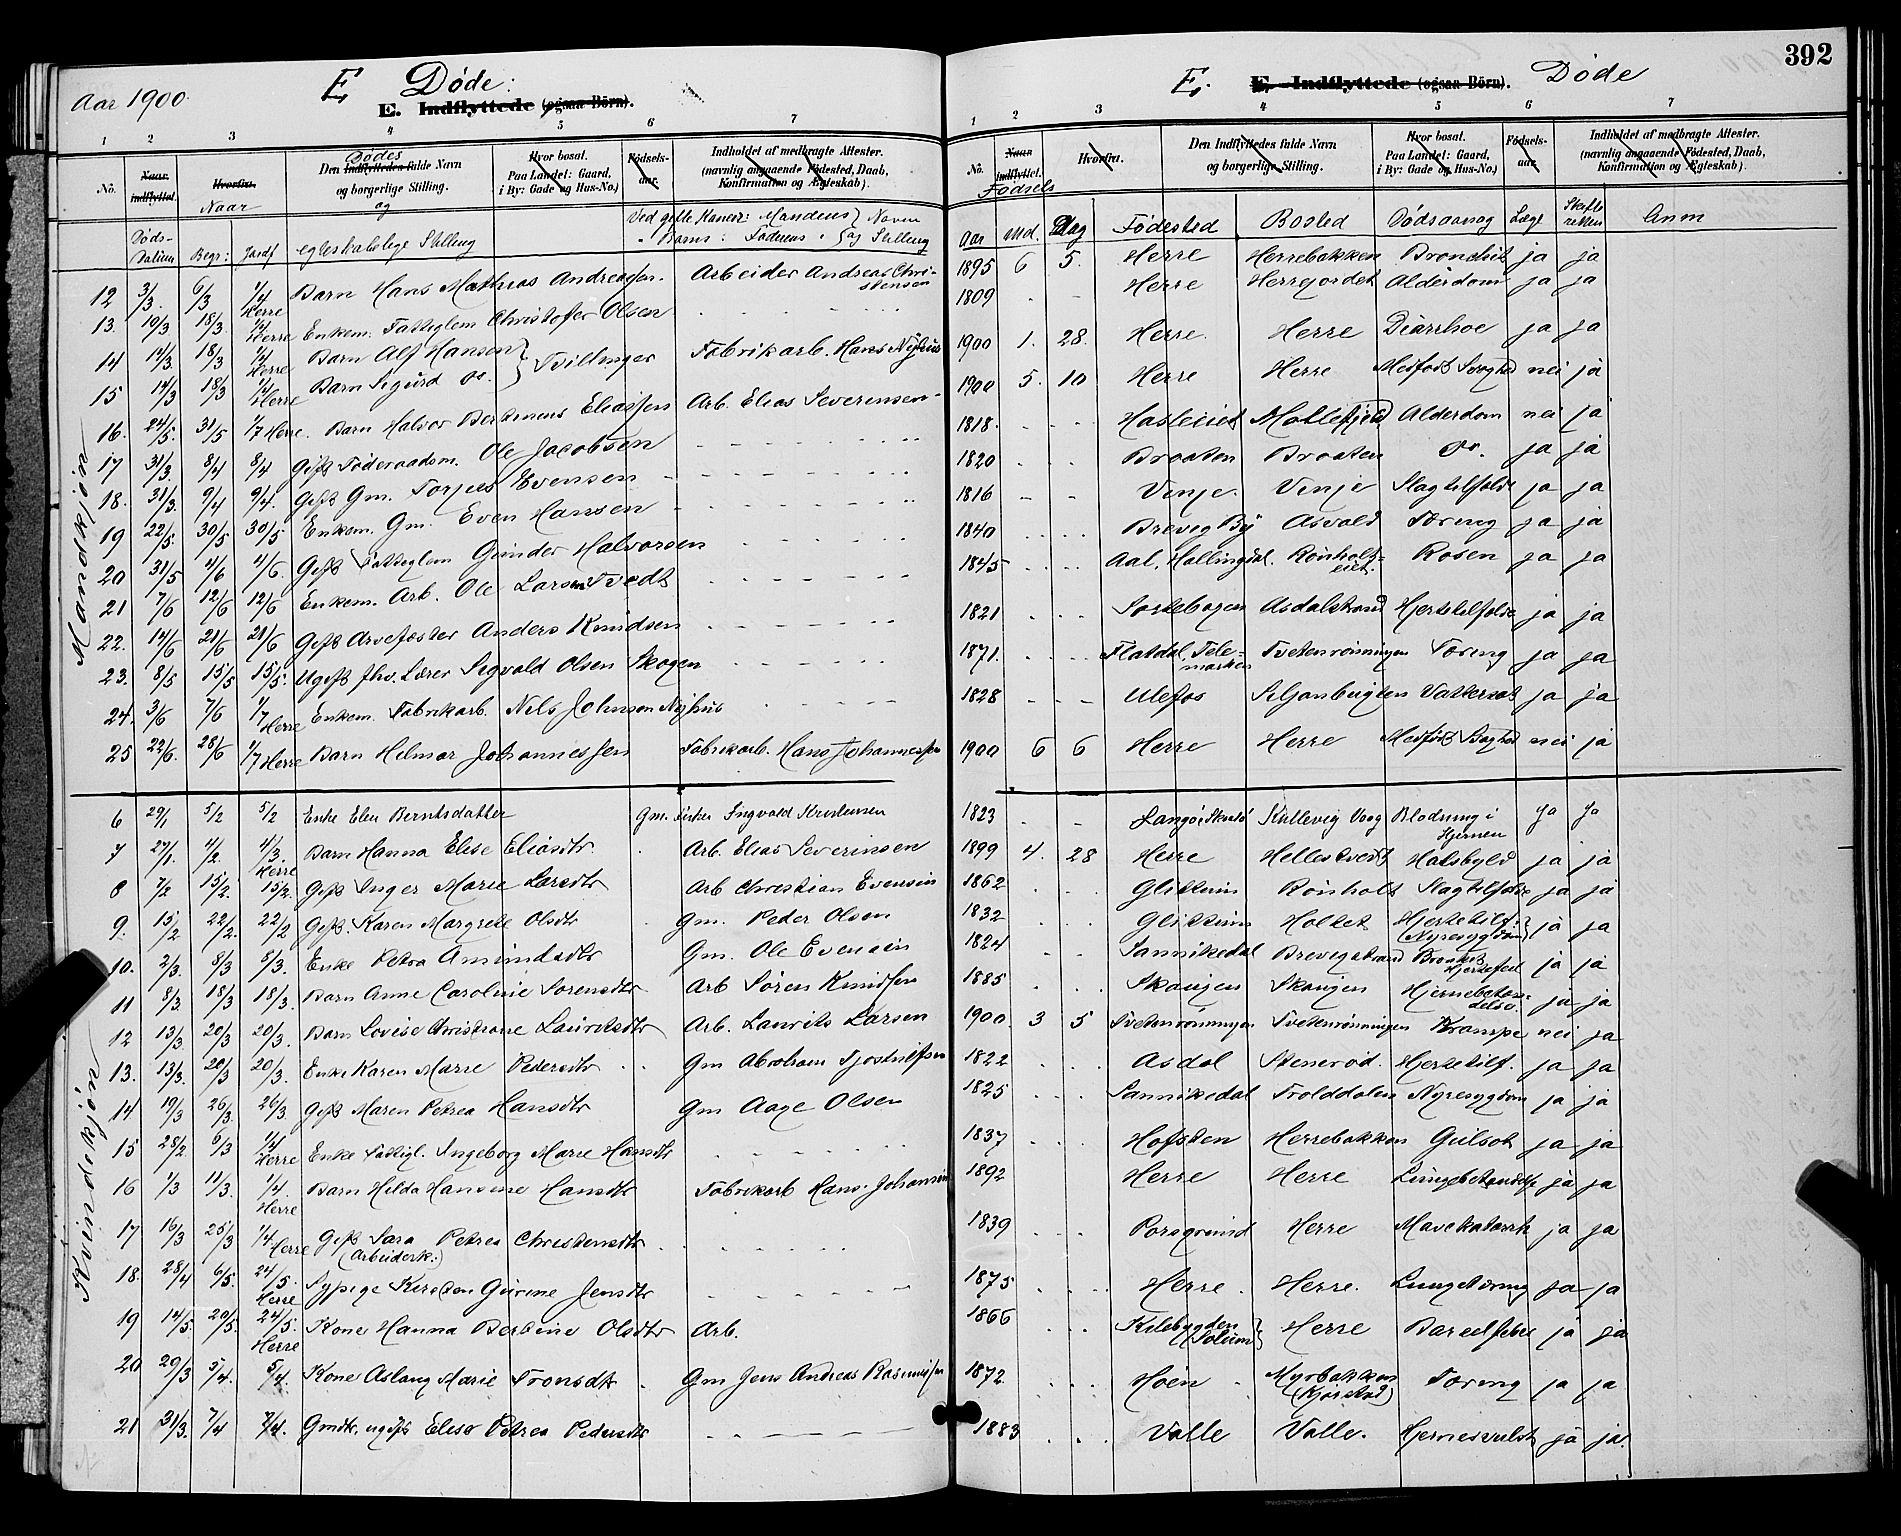 392
Aar 1900.
E Døde:
E. Indflyttede (ogsaa Börn).
E. E. Indflyttede (ogsaa Börn). Døde
1 2 3 4 5 6 7
1 2 3 4 5 6 7
No. Naar indflyttet. Hvorfra. Den Indflyttedes fulde Navn og borgerlige Stilling. Hvor bosat. Paa Landet: Gaard, i By: Gade og Hus-No.) Födselsaar. Indholdet af medbragte Attester. (navnlig angaaende Födested, Daab, Konfirmation og Ægteskab).
Dødes
Naar
og
Døds-Datum Begr: Jordf egteskabelige Stilling Ved gifte Koner: Mandens Navn
" Børns: Faderens " og Stilling
No. Naar indflyttet. Hvorfra. Den Indflyttedes fulde Navn og borgerlige Stilling. Hvor bosat. Paa Landet: Gaard, i By: Gade og Hus-No.) Födsels-aar. Indholdet af medbragte Attester. (navnlig angaaende Födested, Daab, Konfirmation og Ægteskab).
Fødsels
Aar Md. Dag Fødested Bosted Dødsaarsag Læge Skifteretten Anm
Mandkjøn:
12 3/3. 6/3 1/4 Herre Barn Hans Mathias Andreassen. Arbeider Andreas Christensen 1895 6 5. Herre Herrebakken Bronchit ja ja
13. 10/3 18/3. 1/4 Herre Enkem. Fattiglem Christofer Olsen 1809 Herre Herrejordet Alderdom ja ja
14 14/3. 18/3 1/4 Herre Barn Alf Hansen } Tvillinger Fabrikarb. Hans Nyhus 1900 1. 28. Herre. Herre Diarrhoe ja ja
15 14/3 18/3 1/4 Herre Barn Sigurd do.
16. 24/5. 31/5 1/7 Herre. Barn Halvor Berthinius Eliassen Arb. Elias Severinsen 1900 5. 10 Herre Herre Medfødt Svaghed nei ja
17 31/3 8/4 8/4 Gift Føderaadsm. Ole Jacobsen 1818. Alderdom nei ja
18. 31/3. 9/4 9/4. Gift Gm. Torjus Evensen 1820 Braaten Braaten do. ja ja
19 22/5. 30/5 30/5 Enkem. Gm. Even Hansen 1816 Venje. Venje Slagtilfælde ja ja
20 31/5 4/6 4/6. Gift Fattiglem Gunder Halvorsen 1840 Brevig By Asvald Tæring ja ja
21 7/6 12/6 12/6 Enkem. Arb. Ole Larsen Tvedt 1845 Aal, Hallingdal. Rønholteiet. Rosen ja ja
22. 14/6 21/6 21/6 Gift Arvefæster Anders Knudsen 1821 Asdalstrand Hjertetilfælde ja ja
23. 8/5 15/5 15/5. Ugift fhv. Lærer Sigvald Olsen Skogen 1871. Flatdal, Telemarken Tvetenrønningen Tæring ja ja
24. 3/6 7/6 1/7 Herre Enkem. Fabrikarb. Nils Johnsen Nyhus 1828 Ulefos Siljanbugten Vattersot ja ja
25 22/6. 28/6 1/7 Herre Barn Helmar Johannessen Fabrikarb. Hans Johannessen 1900 6 6 Herre Herre Medfødt Svaghed nei ja
Kvindekjøn:
6 29/1 5/2 5/2 Enke Elen Berntsdatter Gm. Fisker Ingvald Kristensen 1823 Langø, Skaatø Kullevig Vaag Blødning i Hjernen Ja Ja
7 27/1. 4/2. 4/3. Herre Barn Hanna Elise Eliasdtr. Arb. Elias Severinsen 1899 4. 28 Herre Hellestvedt Halsbyld ja ja
8 7/2 15/2. 15/2. Gift Inger Marie Larsdtr Arb Christian Evensen 1862 Glittum Rønholt Slagtilfælde ja ja
9. 15/2 22/2. 22/2 Gift Karen Margrete Olsdtr Gm. Peder Olsen 1832 Glittum Holtet Hjertetilf. (Nyresygdom) ja ja
10. 2/3. 8/3 8/3. Enke Petra Amundsdtr Gm. Ole Evensen 1824 Sannikedal Brevigstrand Bronkit Hjertefeil ja ja
11 8/3. 18/3 18/3. Barn Anne Caroline Sørensdtr Arb Søren Knudsen 1885 Skaugen Skaugen Hjernebetændelse. ja ja
12 13/3 20/3 20/3. Barn Lovise Christiane Lauritsdtr Arb. Laurits Larsen 1900. 3 5 Tvetenrønningen Tvetenrønningen Krampe nei ja
13. 13/3. 20/3 20/3. Enke Karen Marie Pedersdtr Gm Abraham Tjostolfsen 1822 Asdal Stenerød. Hjertetilf. ja ja
14 19/3 26/3. 26/3. Gift Maren Petrea Hansdtr Gm Aage Olsen 1825 Sannikedal Trolddalen Nyresygdom ja ja
15 28/2 6/3 1/4 Herre Enke Fattigl. Ingeborg Marie Hansdtr 1837 Hofsten Herrebakken Gulsot ja ja
16 1/3 11/3. 1/4. Herre Barn Hilda Hansine Hansdtr Fabrikarb Hans Johansen 1892 Herre Herre Lungebetændelse ja ja
17 16/3 25/3 1/4 Herre Gift Sara Petrea Christensdtr (Arbeiderk.) 1839 Porsgrund Herre Mavekatarrh ja ja
18. 28/4 6/5. 24/5. Herre Sypige Kirsten Gurine Jensdtr 1875 Herre. Herre. Lungetæring ja ja
19 14/5. 20/5. 24/5. Herre Kone Hanna Berthine Olsdtr Arb. 1866 Kilebygden (Solum) Herre Barselfeber ja ja
20 29/3 5/4. 5/4. Kone Aslaug Marie Tronsdtr Gm Jens Andreas Rasmussen 1872. Høen Myrbakken (Kjørstad) Tæring ja ja
21 31/3. 7/4 7/4. Gmdtr. ugift Elise Petrea Pedersdtr 1883 Valle Valle. Hjernesvulst ja ja.